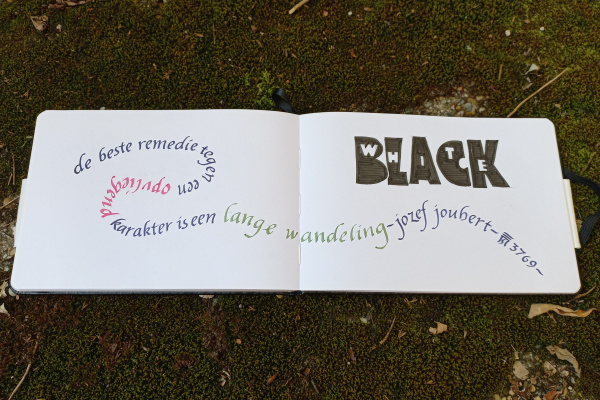 de beste remedie tegen een opvliegend karakter is een lange wandeling-jozef joubert-3769-
BLACK
WHITE